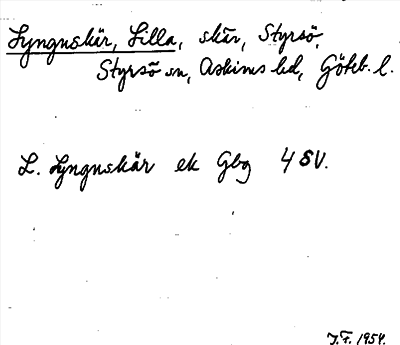 Lyngnskär, Lilla, skär, Styrsö,
Styrsö sn, Askims hd, Göteb. l.
L. Lyngnskär ek Gbg 4 SV.
J.F. 1954.